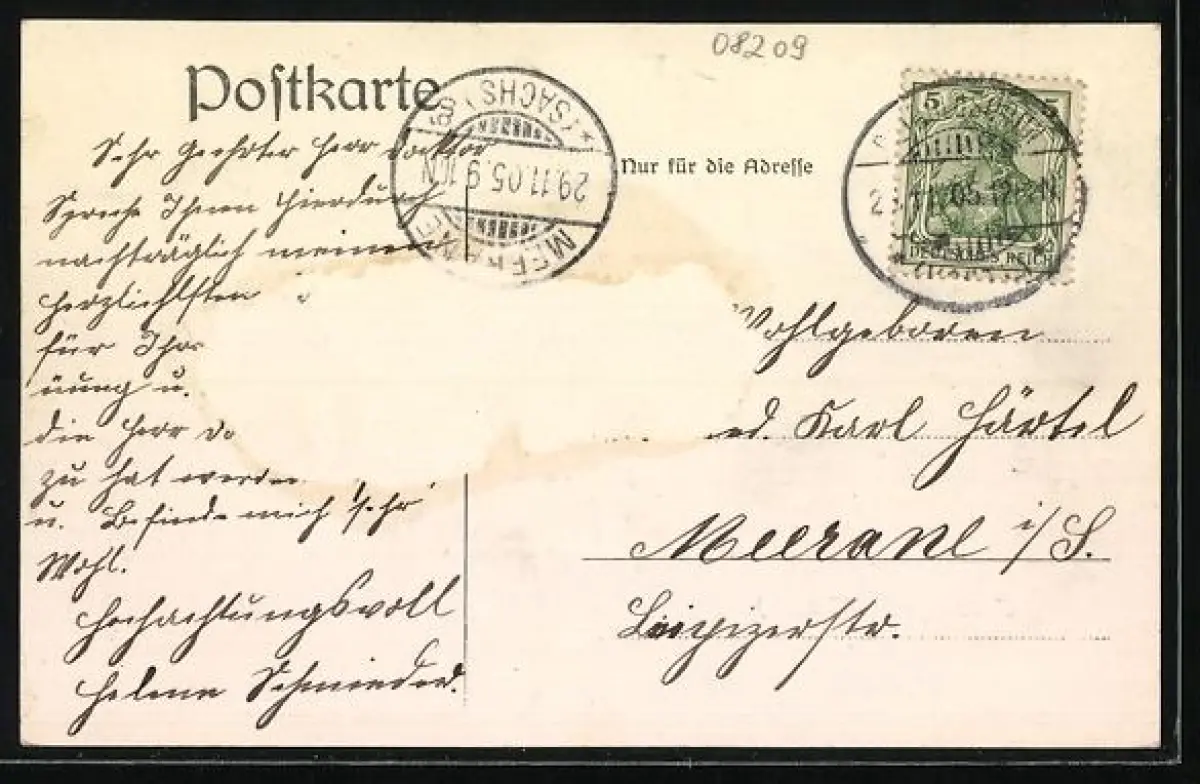 08209
Postkarte
Nur für die Adresse
MEERANE
*(SACHS.)
29.11.05.9-10N
5 5
DEUTSCHES REICH
Sehr geehrter Herr Docktor
Spreche Ihnen hierdurch
nachträglich meinen
herzlichsten
für Ihre
nung u.
die Herr Do
zu hat werden
u. Befinde mich sehr
Wohl.
Hochachtungsvoll
Helene Schmieder.
Wohlgeboren
ed. Karl Härtel
Meerane i/S.
Leipzigerstr.